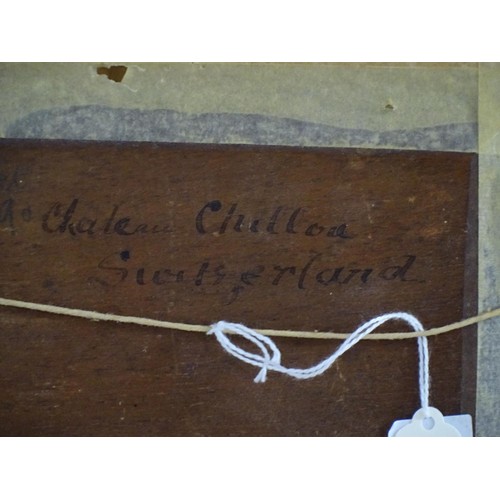 Chateau Chillon
Switzerland